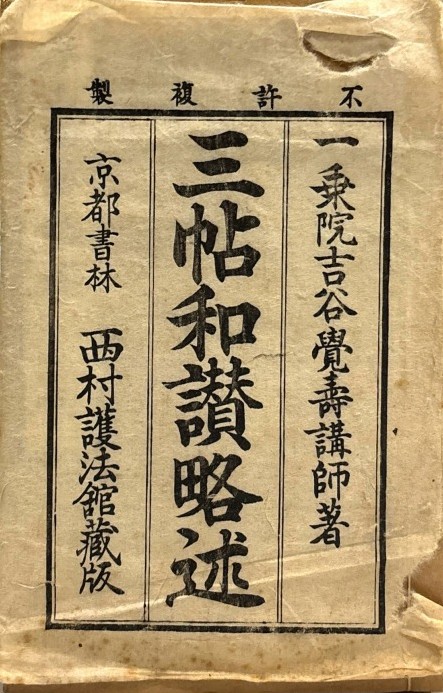 不許複製
一乗院吉谷覺壽講師著
三帖和讃略述
京都書林 西村護法館藏版